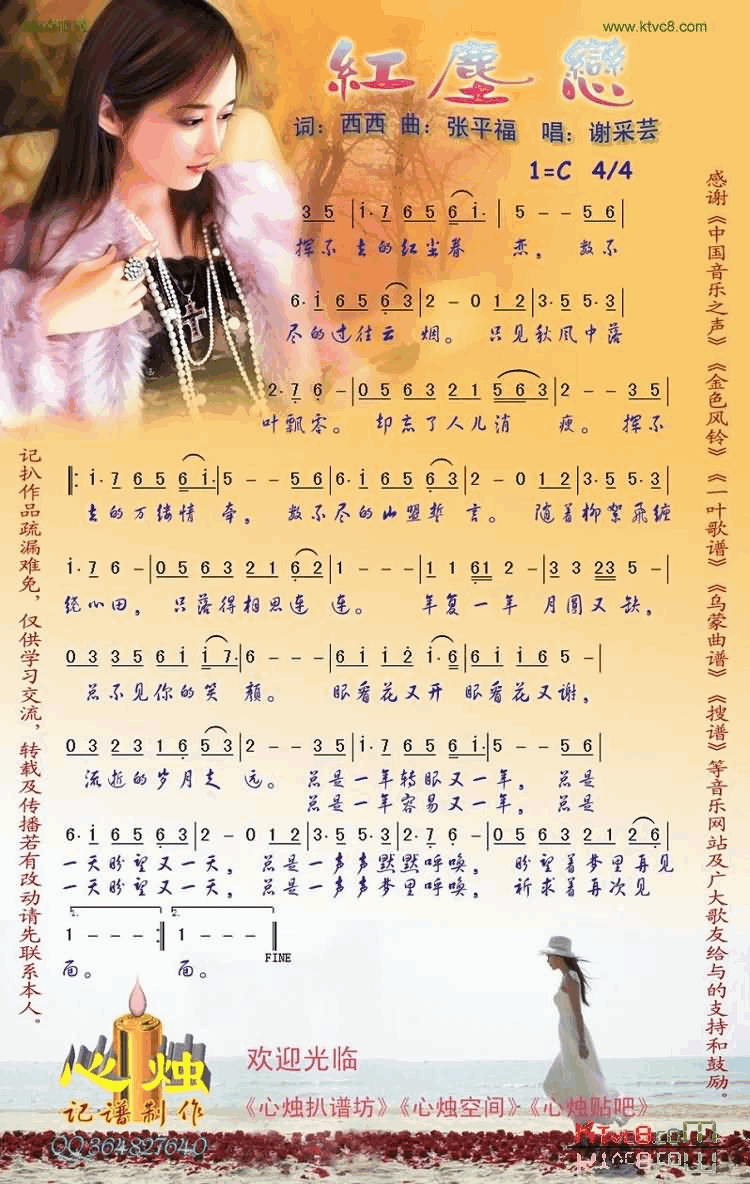 www.ktvc8.com
紅塵戀
词：西西 曲：张平福 唱：谢采芸
1=C 4/4
3 5 | 1· 7 6 5 6 1· | 5 - - 5 6 |
挥不去的红尘眷恋，数不
6· 1 6 5 6 3 | 2 - 0 1 2 | 3· 5 5· 3 |
尽的过往云烟。只见秋风中落
2· 7 6 - | 0 5 6 3 2 1 5 6 3 | 2 - - 3 5 |
叶飘零。却忘了人儿消瘦。挥不
1· 7 6 5 6 1· | 5 - - 5 6 | 6· 1 6 5 6 3 | 2 - 0 1 2 | 3· 5 5· 3 |
去的万缕情牵，数不尽的山盟誓言。随着柳絮飛缠
1· 7 6 - | 0 5 6 3 2 1 6 2 | 1 - - - | 1 1 61 2 - | 3 3 23 5 - |
绕心田，只落得相思连连。年复一年月圆又缺，
0 3 3 5 6 1 1 7· | 6 - - - | 6 1 1 2 1· 6 | 6 1 1 6 5 - |
总不见你的笑颜。眼看花又开 眼看花又谢，
0 3 2 3 1 6 5 3 | 2 - - 3 5 | 1· 7 6 5 6 1 | 5 - - 5 6 |
流逝的岁月走远。总是一年转眼又一年，总是
总是一年容易又一年，总是
6· 1 6 5 6 3 | 2 - 0 1 2 | 3· 5 5· 3 | 2· 7 6 - | 0 5 6 3 2 1 2 6 |
一天盼望又一天，总是一声声默默呼唤，盼望着梦里再见
一天盼望又一天，总是一声声梦里呼唤，祈求着再次见
1 - - - 1 - - -
FINE
面。面。
记扒作品疏漏难免，仅供学习交流，转载及传播若有改动请先联系本人。
感谢《中国音乐之声》《金色风铃》《一叶歌谱》《乌蒙曲谱》《搜谱》等音乐网站及广大歌友给与的支持和鼓励。
心烛
记谱制作
QQ364827640
欢迎光临
《心烛扒谱坊》《心烛空间》《心烛贴吧》
KTvc8.com